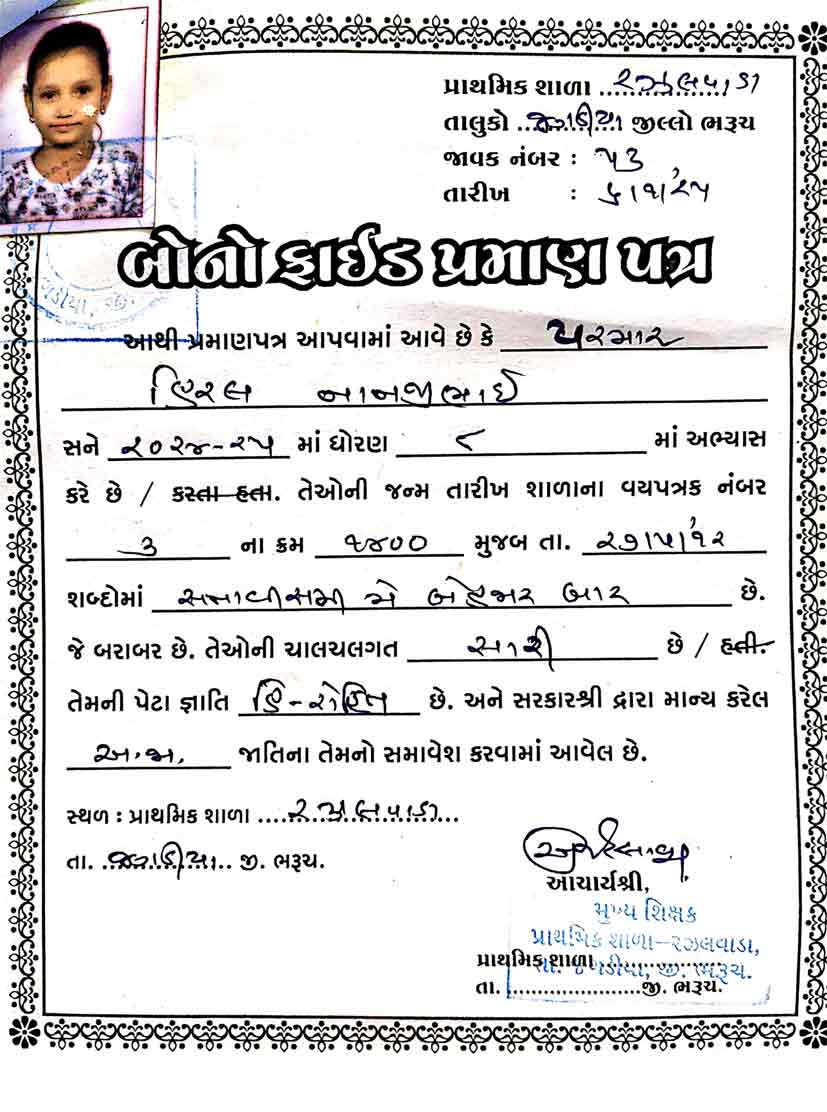 પ્રાથમિક શાળા રઝલવાડા
તાલુકો ઝગડીયા જીલ્લો ભરૂચ
જાવક નંબર : ૫૩
તારીખ :
બોનો ફાઈડ પ્રમાણ પત્ર
આથી પ્રમાણપત્ર આપવામાં આવે છે કે પરમાર
હિરલ નાનજીભાઈ
સને ૨૦૨૪-૨૫ માં ધોરણ ૮ માં અભ્યાસ
કરે છે / કરતા હતા. તેઓની જન્મ તારીખ શાળાના વયપત્રક નંબર
૩ ના ક્રમ ૧૪૦૦ મુજબ તા. ૨૭/૫/૧૨
શબ્દોમાં સત્તાવીસમી મે બેહજાર બાર છે.
જે બરાબર છે. તેઓની ચાલચલગત સારી છે / હતી.
તેમની પેટા જ્ઞાતિ હિ-રોહિત છે. અને સરકારશ્રી દ્વારા માન્ય કરેલ
અ.જા. જાતિના તેમનો સમાવેશ કરવામાં આવેલ છે.
સ્થળ : પ્રાથમિક શાળા રઝલવાડા
તા. ઝગડીયા જી. ભરૂચ.
આચાર્યશ્રી,
મુખ્ય શિક્ષક
પ્રાથમિક શાળા-રઝલવાડા,
તા. ઝગડીયા, જી. ભરૂચ.
પ્રાથમિક શાળા
તા. જી. ભરૂચ.